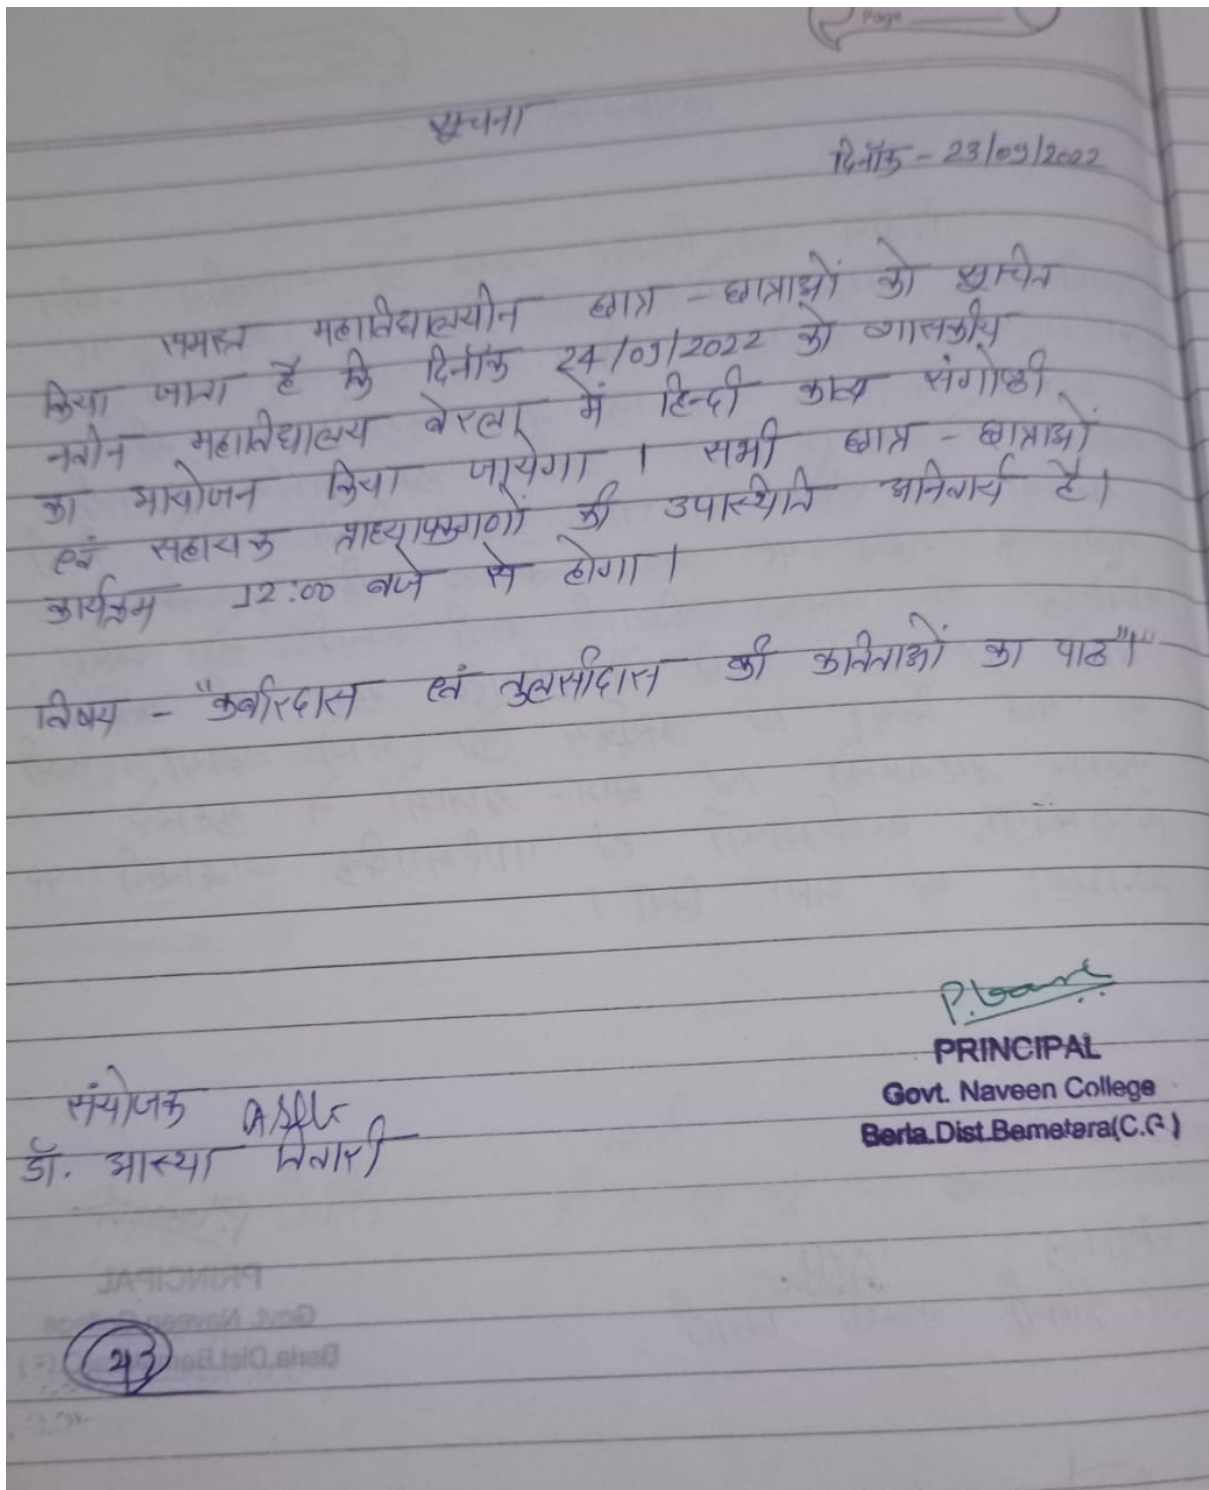 Page
सूचना
दिनॉक - 23/09/2022
समस्त महाविद्यालयीन छात्र - छात्राओं को सूचित
किया जाता है कि दिनॉक 24/09/2022 को शासकीय
नवीन महाविद्यालय बेरला में हिन्दी काव्य संगोष्ठी
का आयोजन किया जायेगा । सभी छात्र - छात्राओं
एवं सहायक प्राध्यापकगणों की उपास्थिति अनिवार्य है।
कार्यक्रम 12:00 बजे से होगा ।
विषय - "कबीरदास एवं तुलसीदास की कविताओं का पाठ"।
PRINCIPAL
Govt. Naveen College
Berla.Dist.Bemetara(C.G)
संयोजक
डॉ. आस्था तिवारी